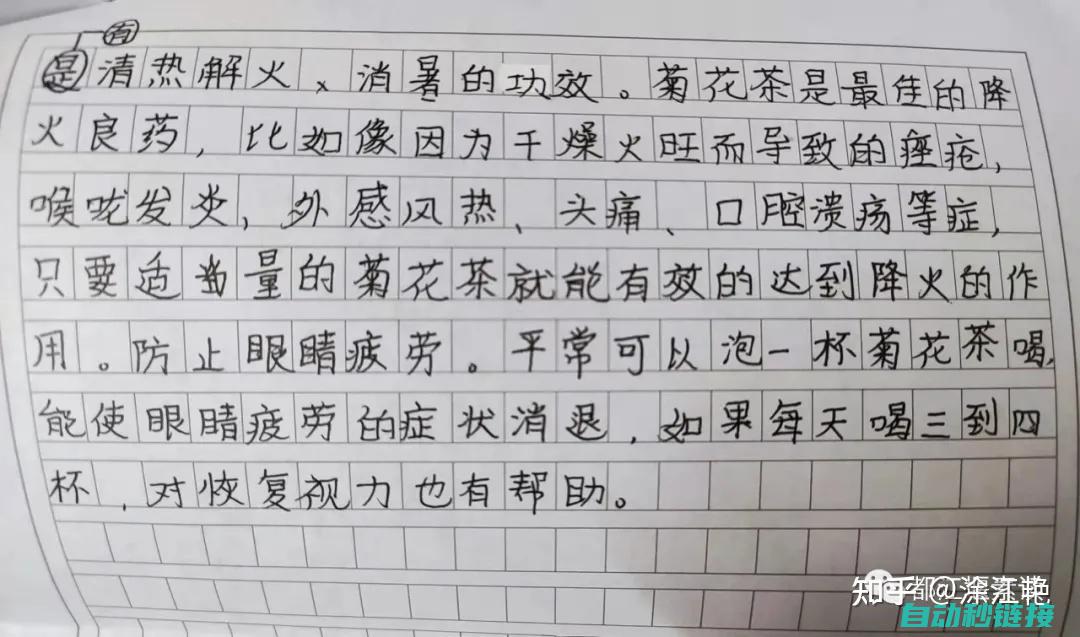 有
是清热解火、消暑的功效。菊花茶是最佳的降
火良药，比如像因为干燥火旺而导致的痤疮，
喉咙发炎，外感风热、头痛、口腔溃疡等症，
只要适当量的菊花茶就能有效的达到降火的作
用。防止眼睛疲劳。平常可以泡一杯菊花茶喝，
能使眼睛疲劳的症状消退，如果每天喝三到四
杯，对恢复视力也有帮助。
知乎 @涂江艳
自动秒链接